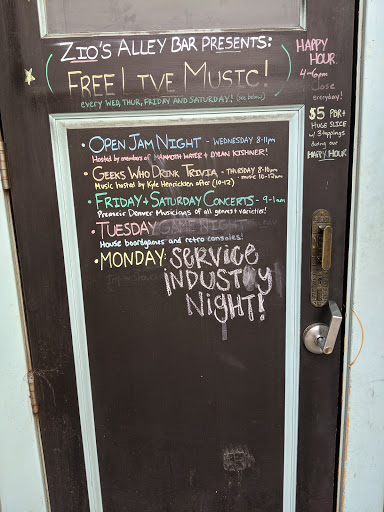 ZIO'S ALLEY BAR PRESENTS:
FREE LIVE MUSIC!
EVERY WED, THUR, FRIDAY AND SATURDAY! (see below)
• OPEN JAM NIGHT - WEDNESDAY 8-11pm
Hosted by members of MAMMOTH WATER + DYLAN KISHNER!
• GEEKS WHO DRINK TRIVIA - THURSDAY 8-10pm
Music hosted by Kyle Henricksen after (10-12) - music 10-12am
• FRIDAY + SATURDAY CONCERTS - 9-1am
Premeir Denver Musicians of all genres + varieties!
• TUESDAY GAME NIGHT
House boardgames and retro consoles!
• MONDAY: SERVICE
INDUSTRY
NIGHT!
HAPPY
HOUR
4-6pm
everyday!
$5 PBR +
HUGE SLICE
w/ 3 toppings
during our
HAPPY HOUR